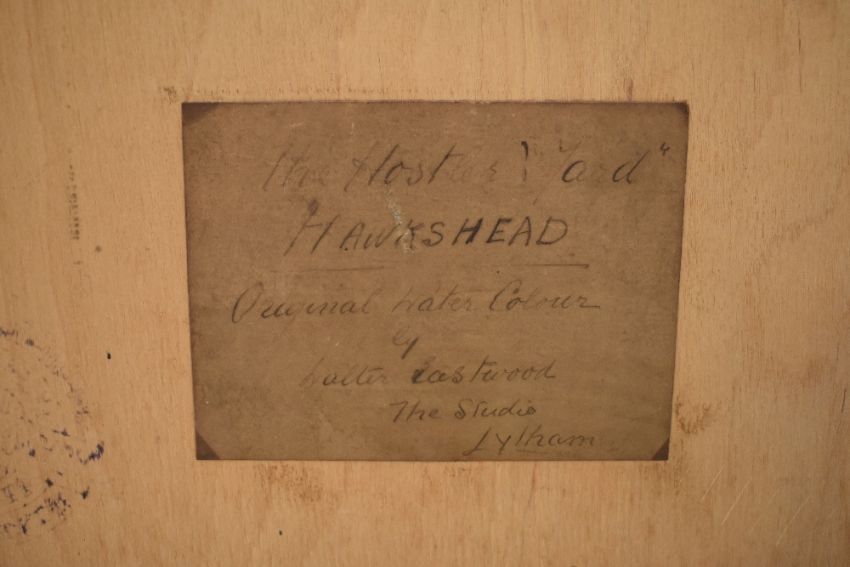 The Hostler Yard"
HAWKSHEAD
Original Water Colour
by
Walter Eastwood
The Studio
Lytham